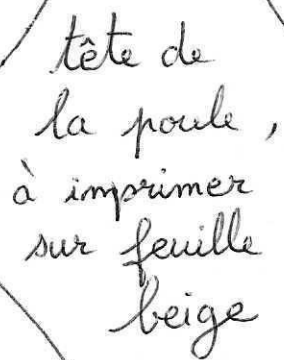 tête de
la poule,
à imprimer
sur feuille
beige